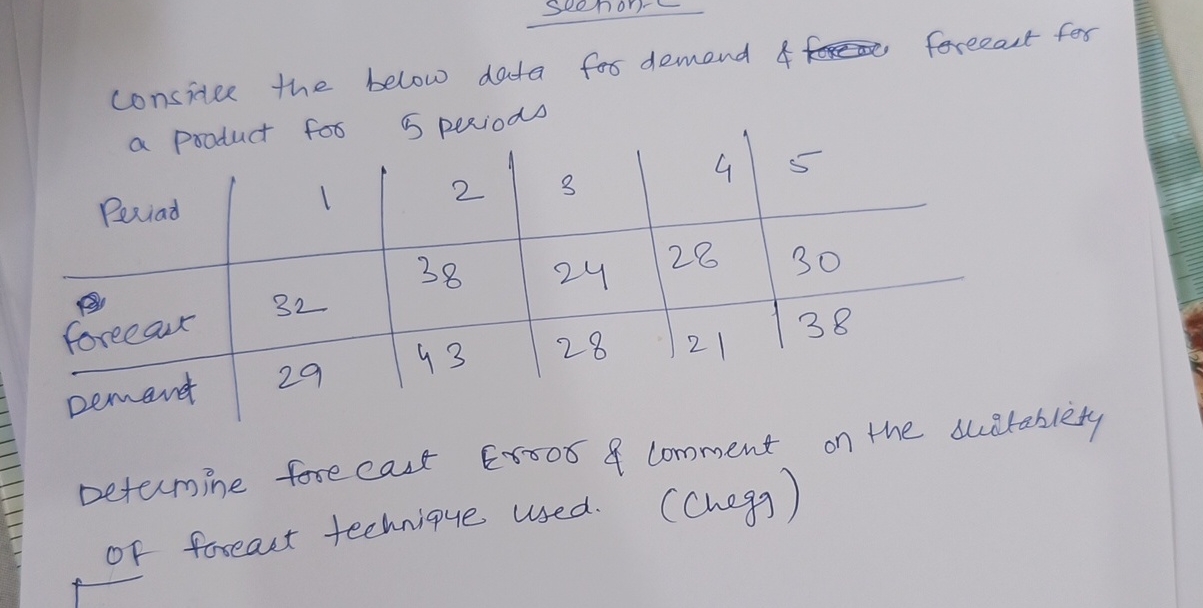 Consider the below data for demand & forecast for
a product for 5 periods
Period 1 2 3 4 5
forecast 32 38 24 28 30
Demand 29 43 28 21 38
Determine forecast Error & Comment on the suitability
of forecast technique used. (Chegg)